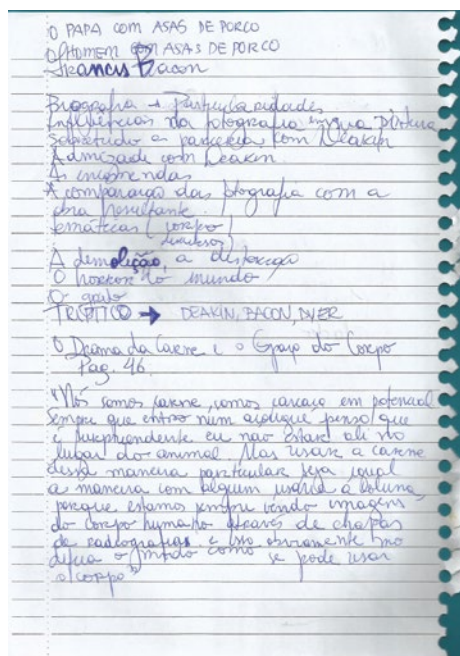 O PAPA COM ASAS DE PORCO
O HOMEM COM ASAS DE PORCO
Francis Bacon
Biografia → Particularidades
Influências da fotografia em sua Pintura
Sobretudo a parceria com Deakin
A amizade com Deakin
As encomendas
A comparação das fotografia com a
obra resultante.
temáticas (corpo
A demolição, a distorção
O horror do mundo
O grito
TRÍPTICO → DEAKIN, BACON, DYER
O Drama da Carne e o Gozo do Corpo
Pag. 46.
"Nós somos carne, somos carcaça em potencial
Sempre que entro num açougue penso que
é surpreendente eu não estar ali no
lugar do animal. Mas usar a carne
dessa maneira particular seja igual
a maneira com alguém usaria a coluna,
porque estamos sempre vendo imagens
do corpo humano através de chapas
de radiografias e isso obviamente
o modo como se pode usar
o corpo"